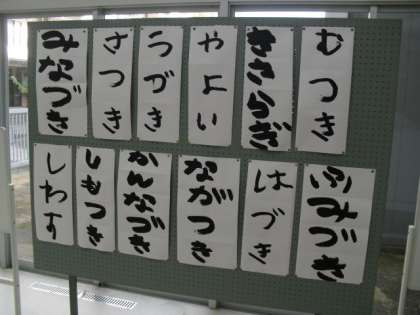 むつき
きさらぎ
やよい
うづき
さつき
みなづき
ふみづき
はづき
ながつき
かんなづき
しもつき
しわす